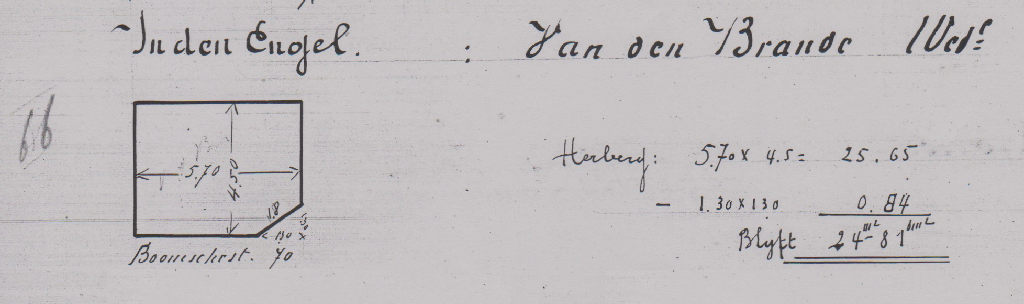 In den Engel. : Van den Brande Wed.
66
5.70
4.50
1.8
130
70
Herberg: 5.70 x 4.5 = 25.65
- 1.30 x 130 0.84
Blyft 24 m² - 81 dm²